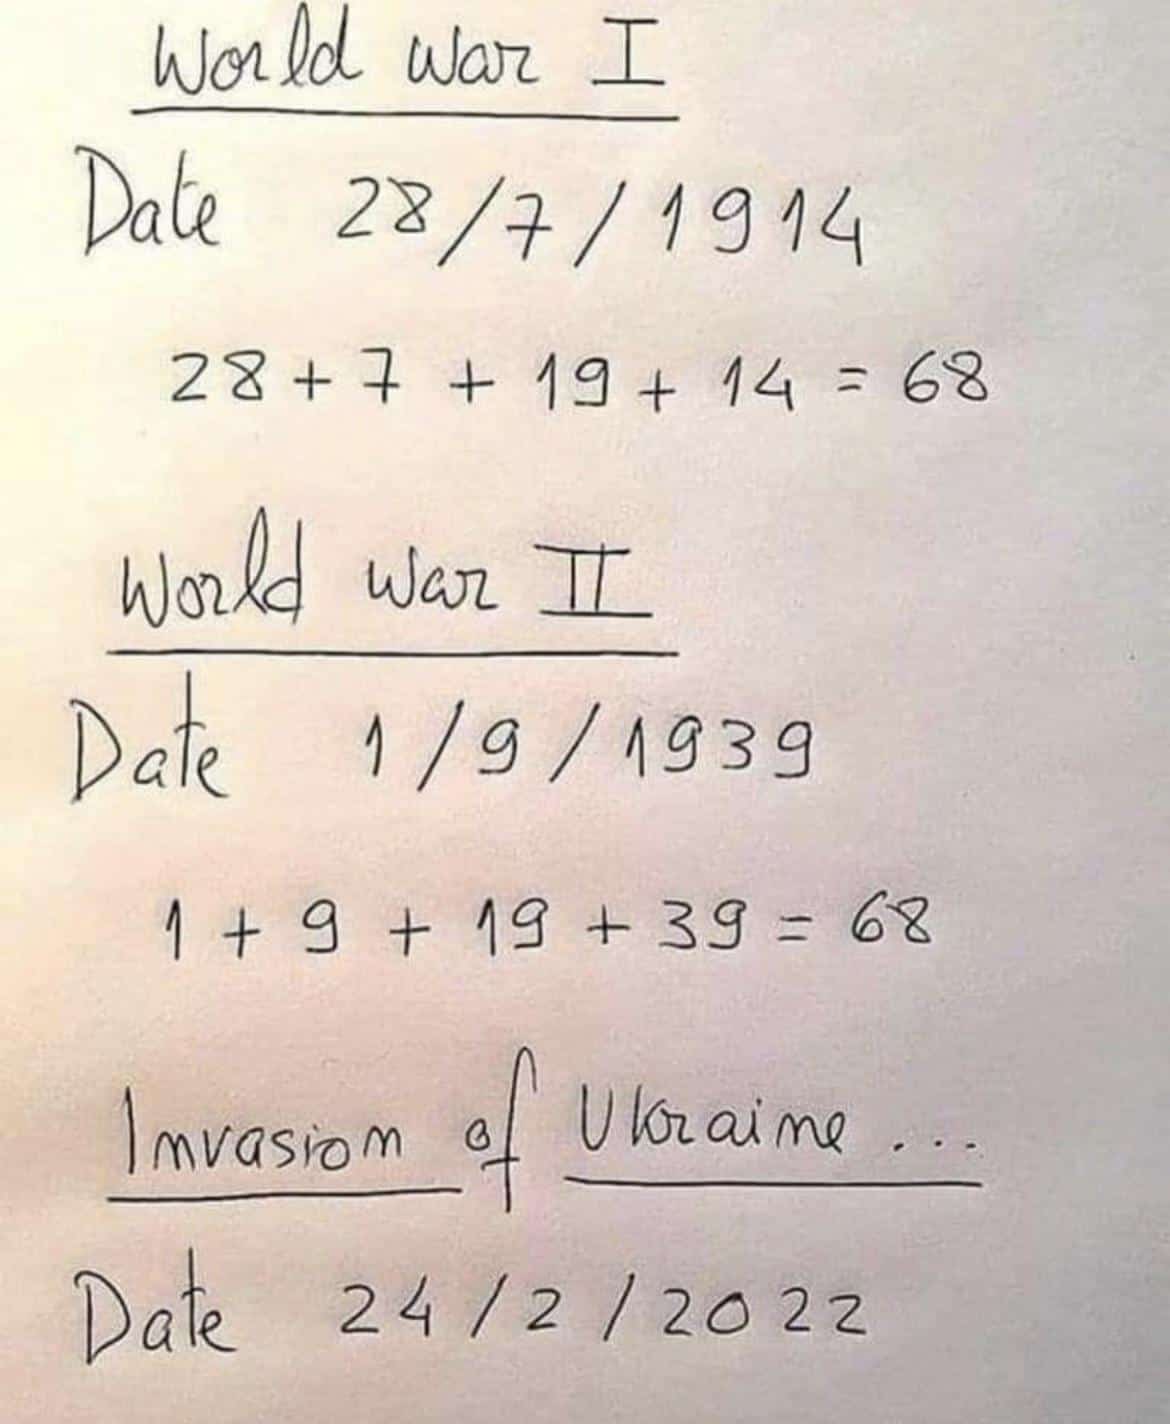 World war I
Date 28/7/1914
28 + 7 + 19 + 14 = 68
World war II
Date 1/9/1939
1 + 9 + 19 + 39 = 68
Invasion of Ukraine ...
Date 24/2/2022